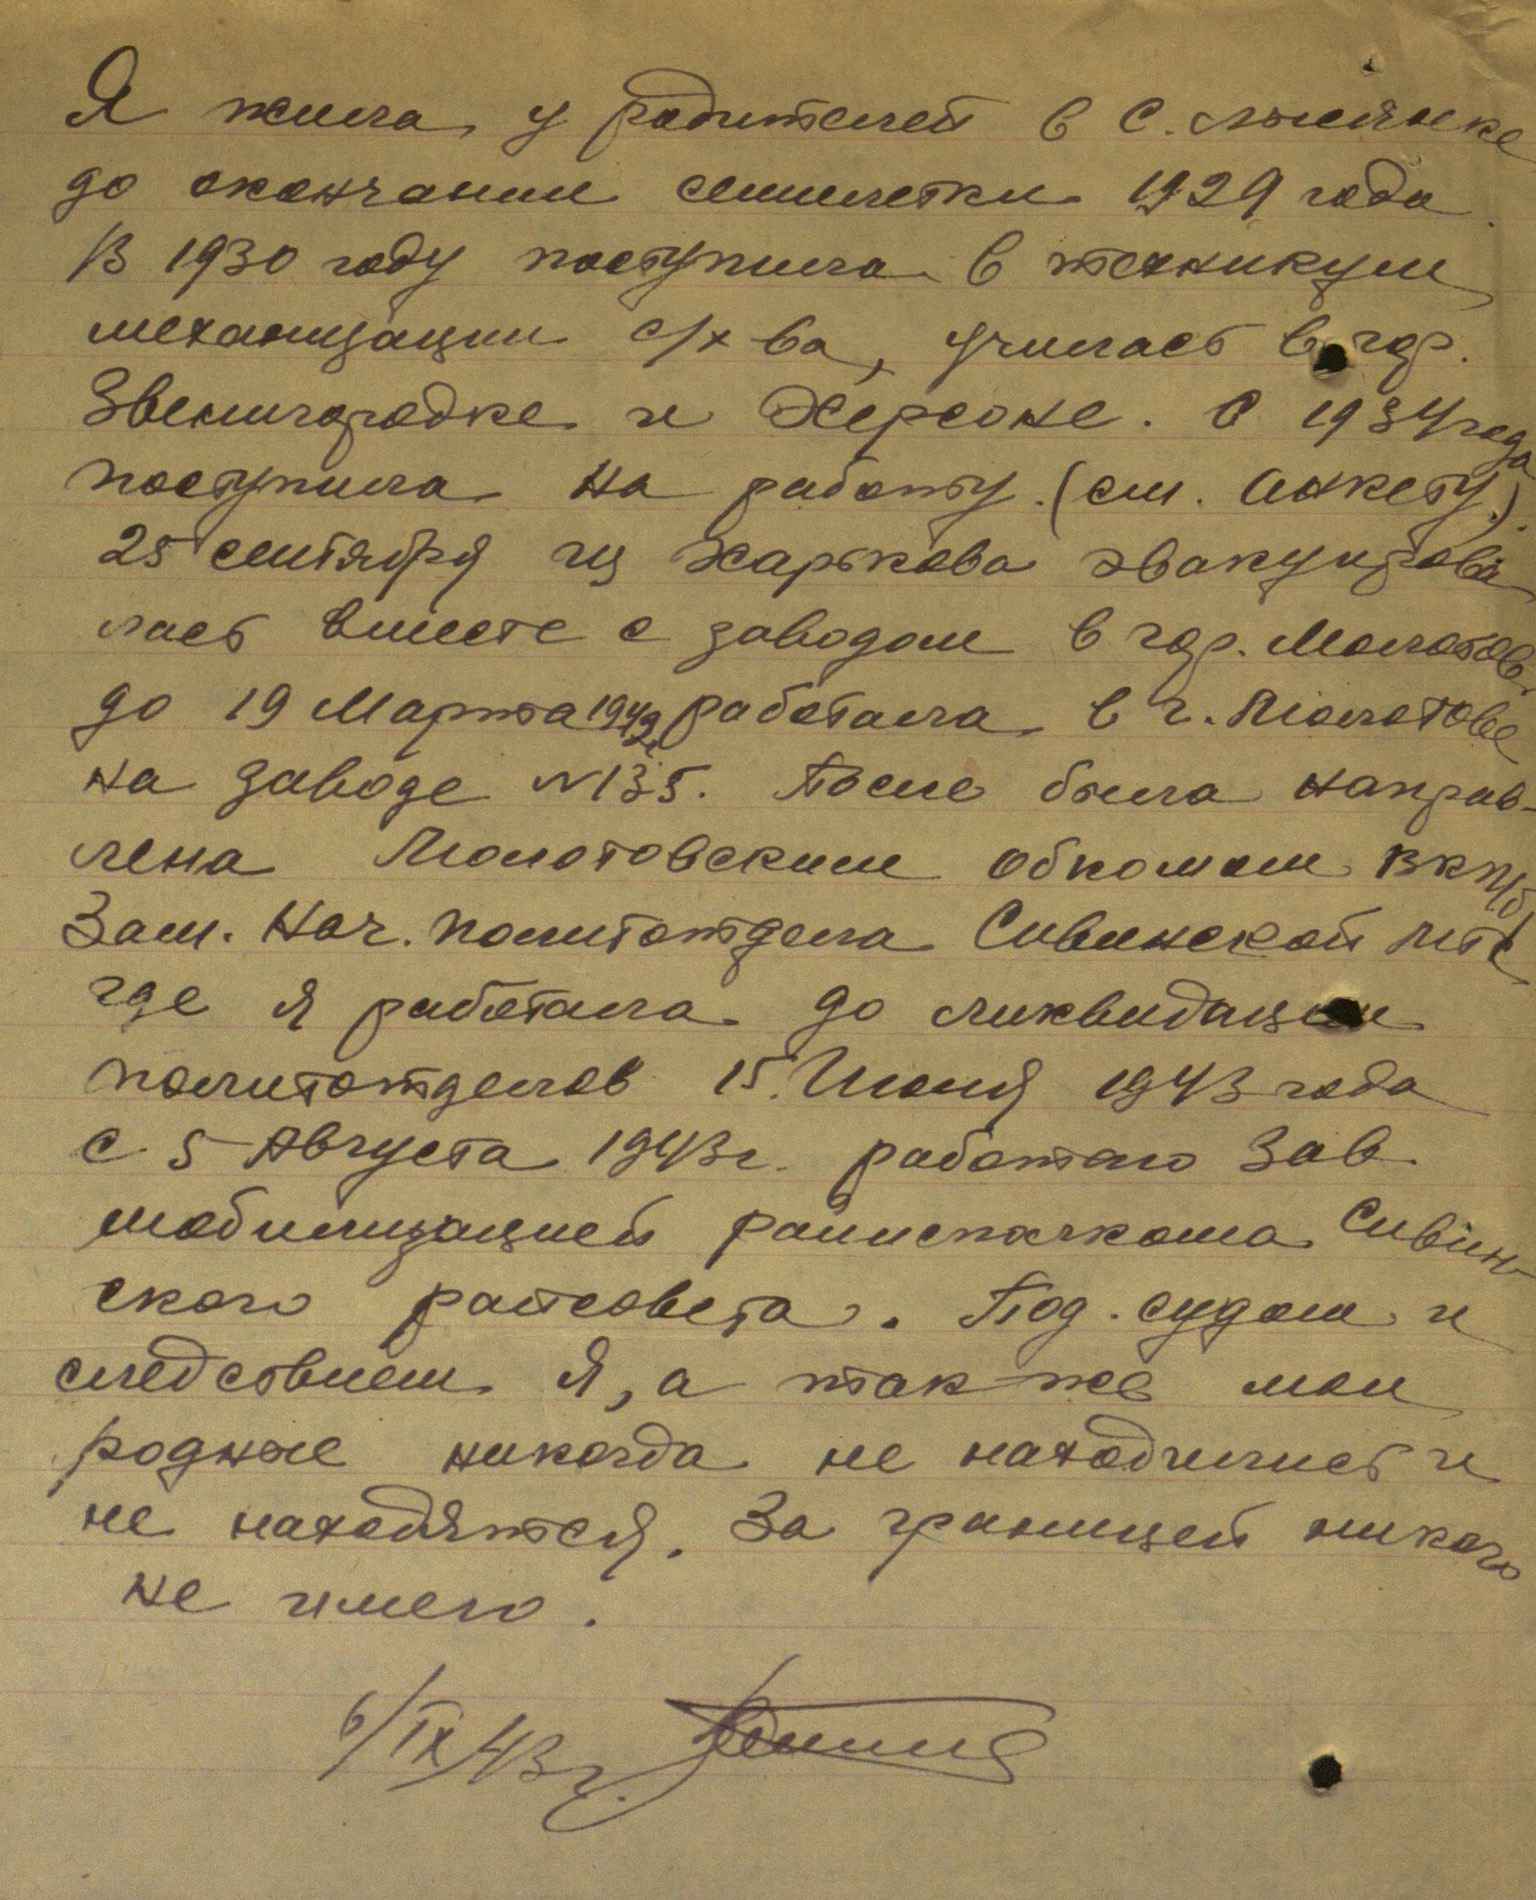 Я жила у родителей в с. Лысянке
до окончании семилетки 1929 года
В 1930 году поступила в техникум
механизации с/х ва, училась в гор.
Звенигородке и Херсоне. С 1934 года
поступила на работу. (см. Анкету).
25 сентября из Харькова эвакуирова
лась вместе с заводом в гор. Молотов
до 19 Марта 1942 работала в г. Молотове
на заводе №135. После была направ-
лена Молотовским обкомом ВКП/б/
Зам. Нач. политотдела Сивинской МТС
где я работала до ликвидации
политотделов 15. Июня 1943 года
с 5 Августа 1943 г. работаю Зав
мобилизацией райисполкома Сивин-
ского райсовета. Под судом и
следствием я, а так же мои
родные никогда не находились и
не находятся. За границей никого
не имею.
6/IX/43 г.